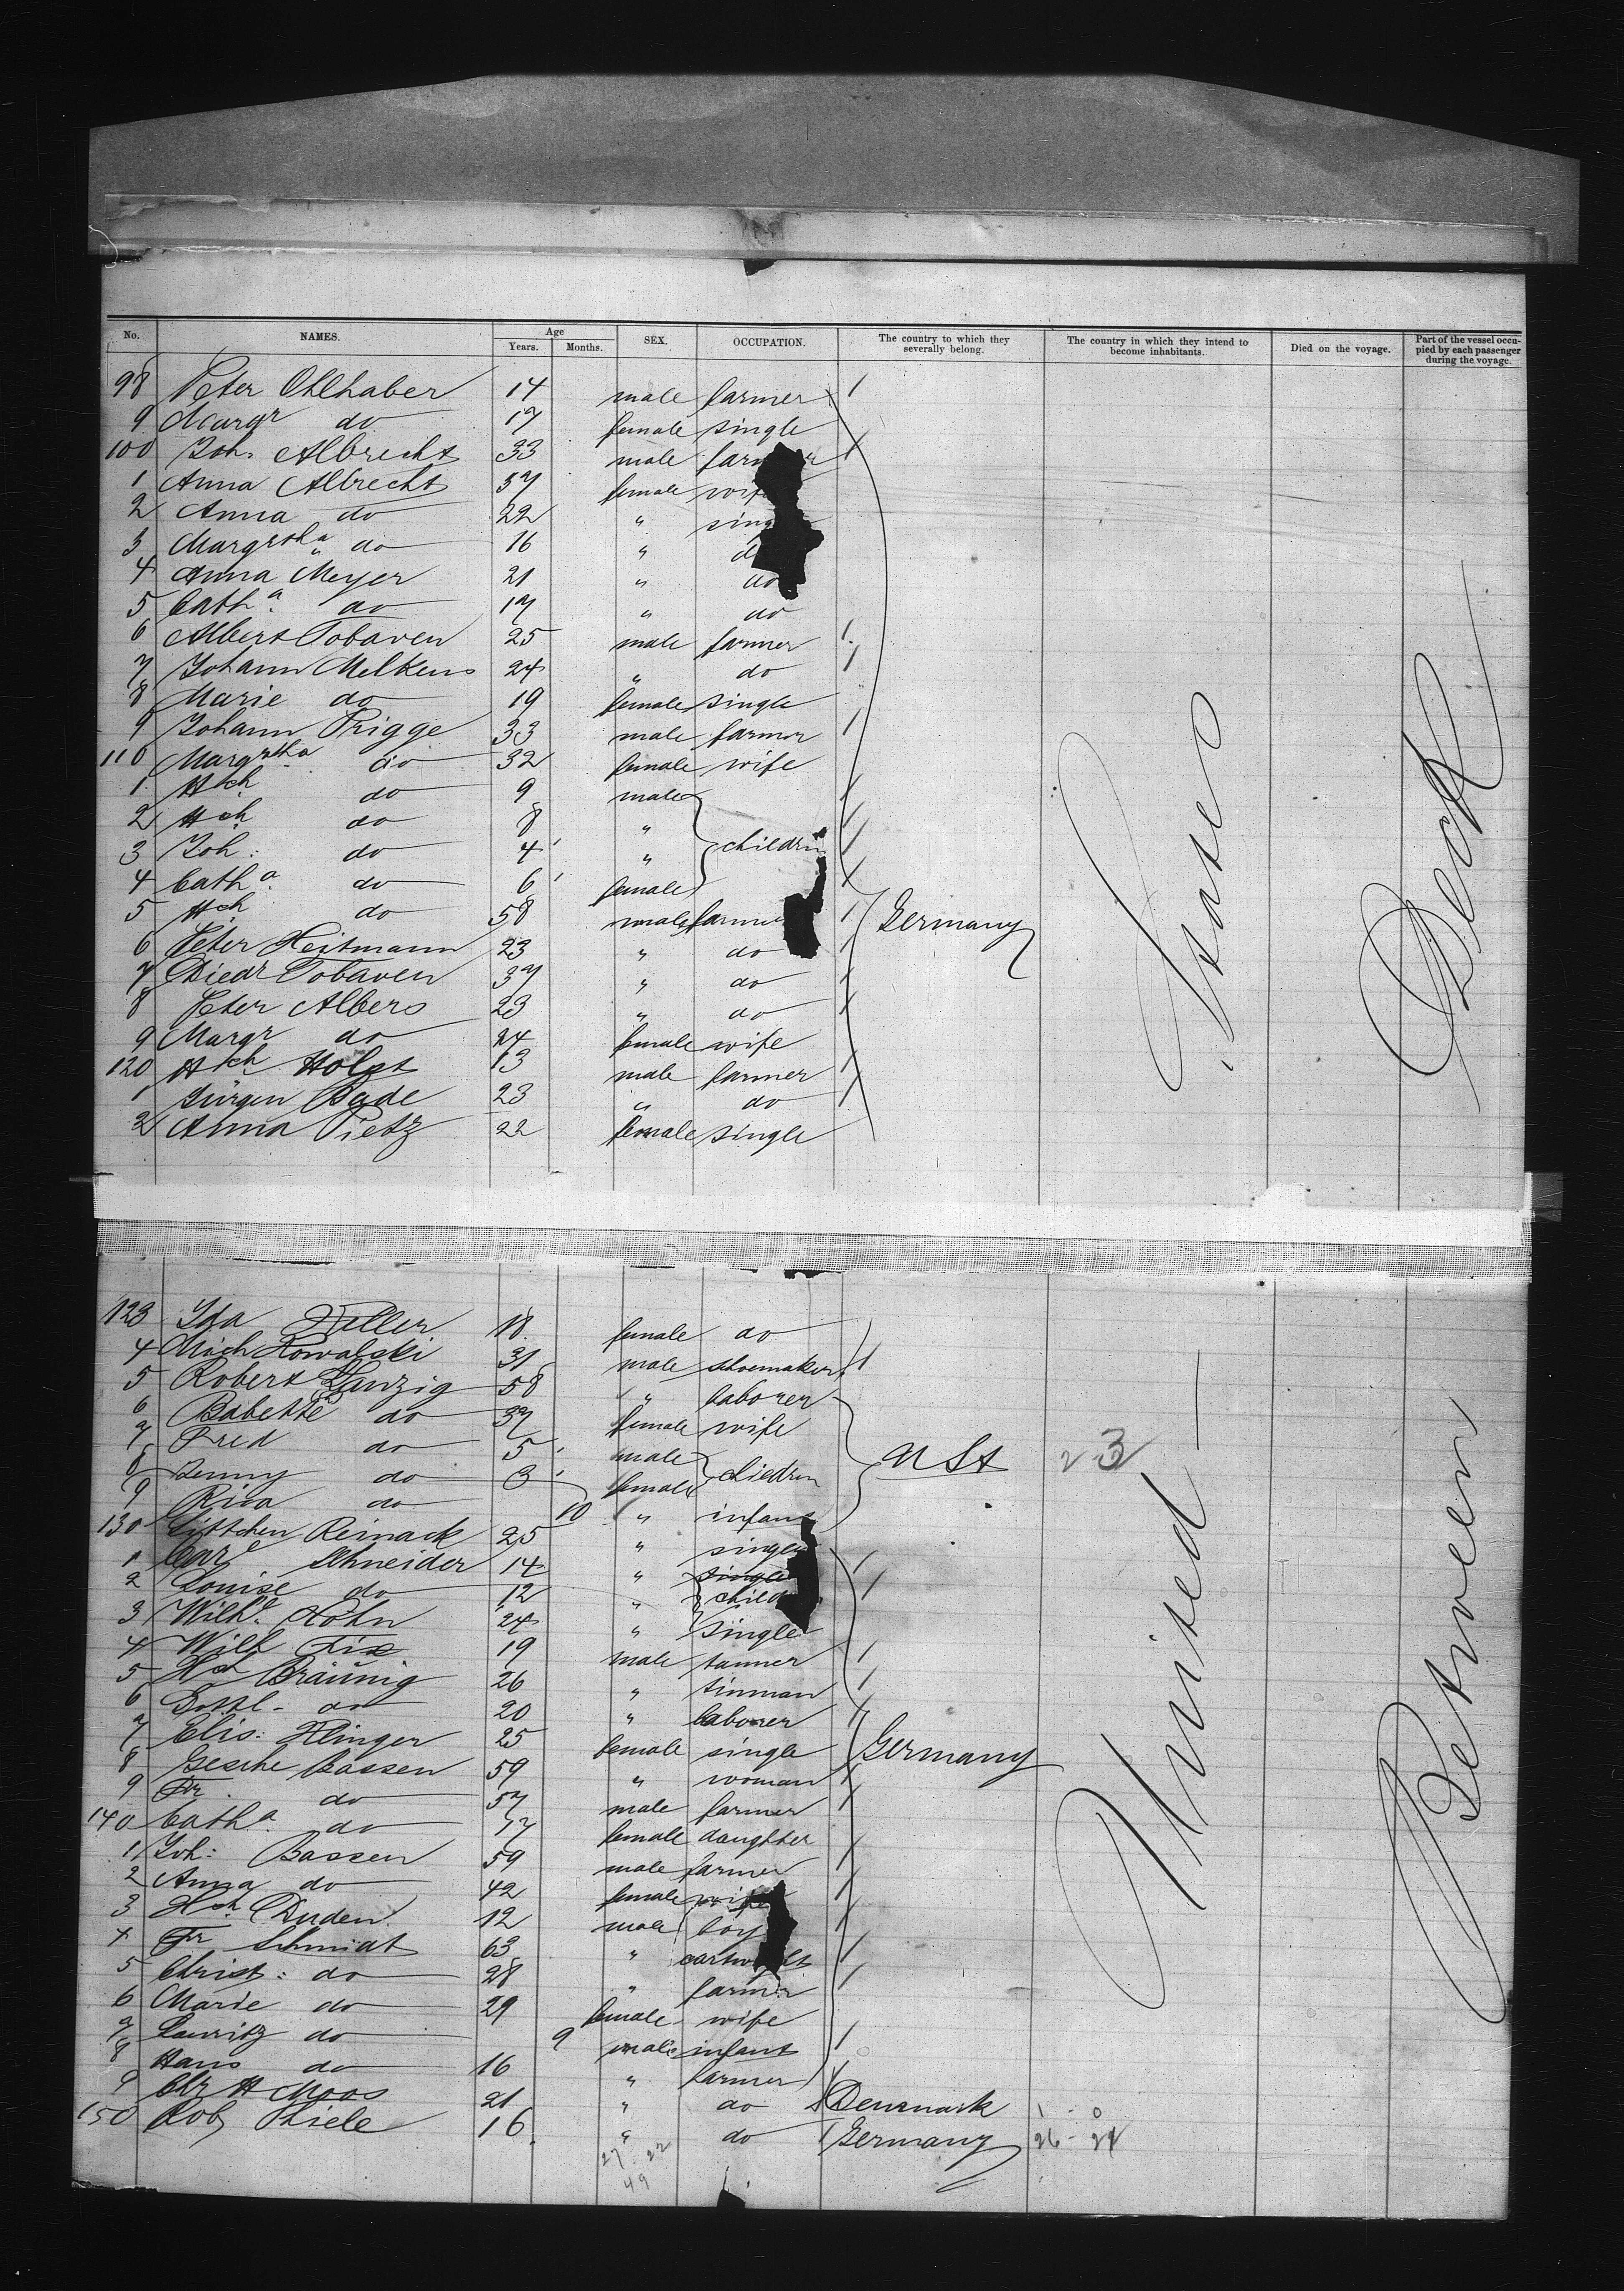 No. NAMES. Age Years. Months. SEX. OCCUPATION. The country to which they severally belong. The country in which they intend to become inhabitants. Died on the voyage. Part of the vessel occupied by each passenger during the voyage.
98 Peter Ohlhaber 14 male farmer
9 Margr do 17 female single
100 Joh. Albrecht 33 male farmer
1 Anna Albrecht 37 female wife
2 Anna do 22 " single
3 Margretha do 16 " do
4 Anna Meyer 21 " do
5 Catha. do 17 " do
6 Albert Tobaven 25 male farmer
7 Johann Melkens 24 " do
8 Marie do 19 female single
9 Johann Prigge 33 male farmer
110 Margretha do 32 female wife
1 Hch do 9 male
2 Hch do 8 "
3 Joh: do 4 " children
4 Catha. do 6 female
5 Hch do 58 male farmer Germany
6 Peter Heitmann 23 " do
7 Diedr Tobaven 37 " do
8 Peter Albers 23 " do
9 Margr do 24 female wife
120 Hch Holst 13 male farmer
1 Jürgen Bade 23 " do
2 Anna Pietz 22 female single
123 Ida Feller 18 female do
4 Mich Kowalski 31 male shoemaker
5 Robert Ganzig 58 " laborer
6 Babette do 37 female wife
7 Fred do 5 male
8 Jenny do 3 female children U St 23
9 Rica do 10 " infant
130 Gittchen Reinack 25 " single
1 Care Schneider 14 " single
2 Louise do 12 " child
3 Wilhe. Kohn 24 " single
4 Wilh Fix 19 male tanner
5 Hch Bräunig 26 " tinman
6 Gottl. do 20 " laborer
7 Elis: Klinger 25 female single Germany
8 Gesche Bassen 59 " woman
9 Fr. do 57 male farmer
140 Catha. do 17 female daughter
1 Joh: Bassen 59 male farmer
2 Anna do 42 female wife
3 Hch Duden 12 male boy
4 Fr Schmidt 63 " cartwright
5 Christ: do 28 " farmer
6 Marie do 29 female wife
7 Lauritz do 9 male infant
8 Hans do 16 " farmer
9 Chr H Moos 21 " do Denmark 1 - 0
150 Rob Thiele 16 " do Germany 26 - 24
27 - 22
49
United States
Between Deck